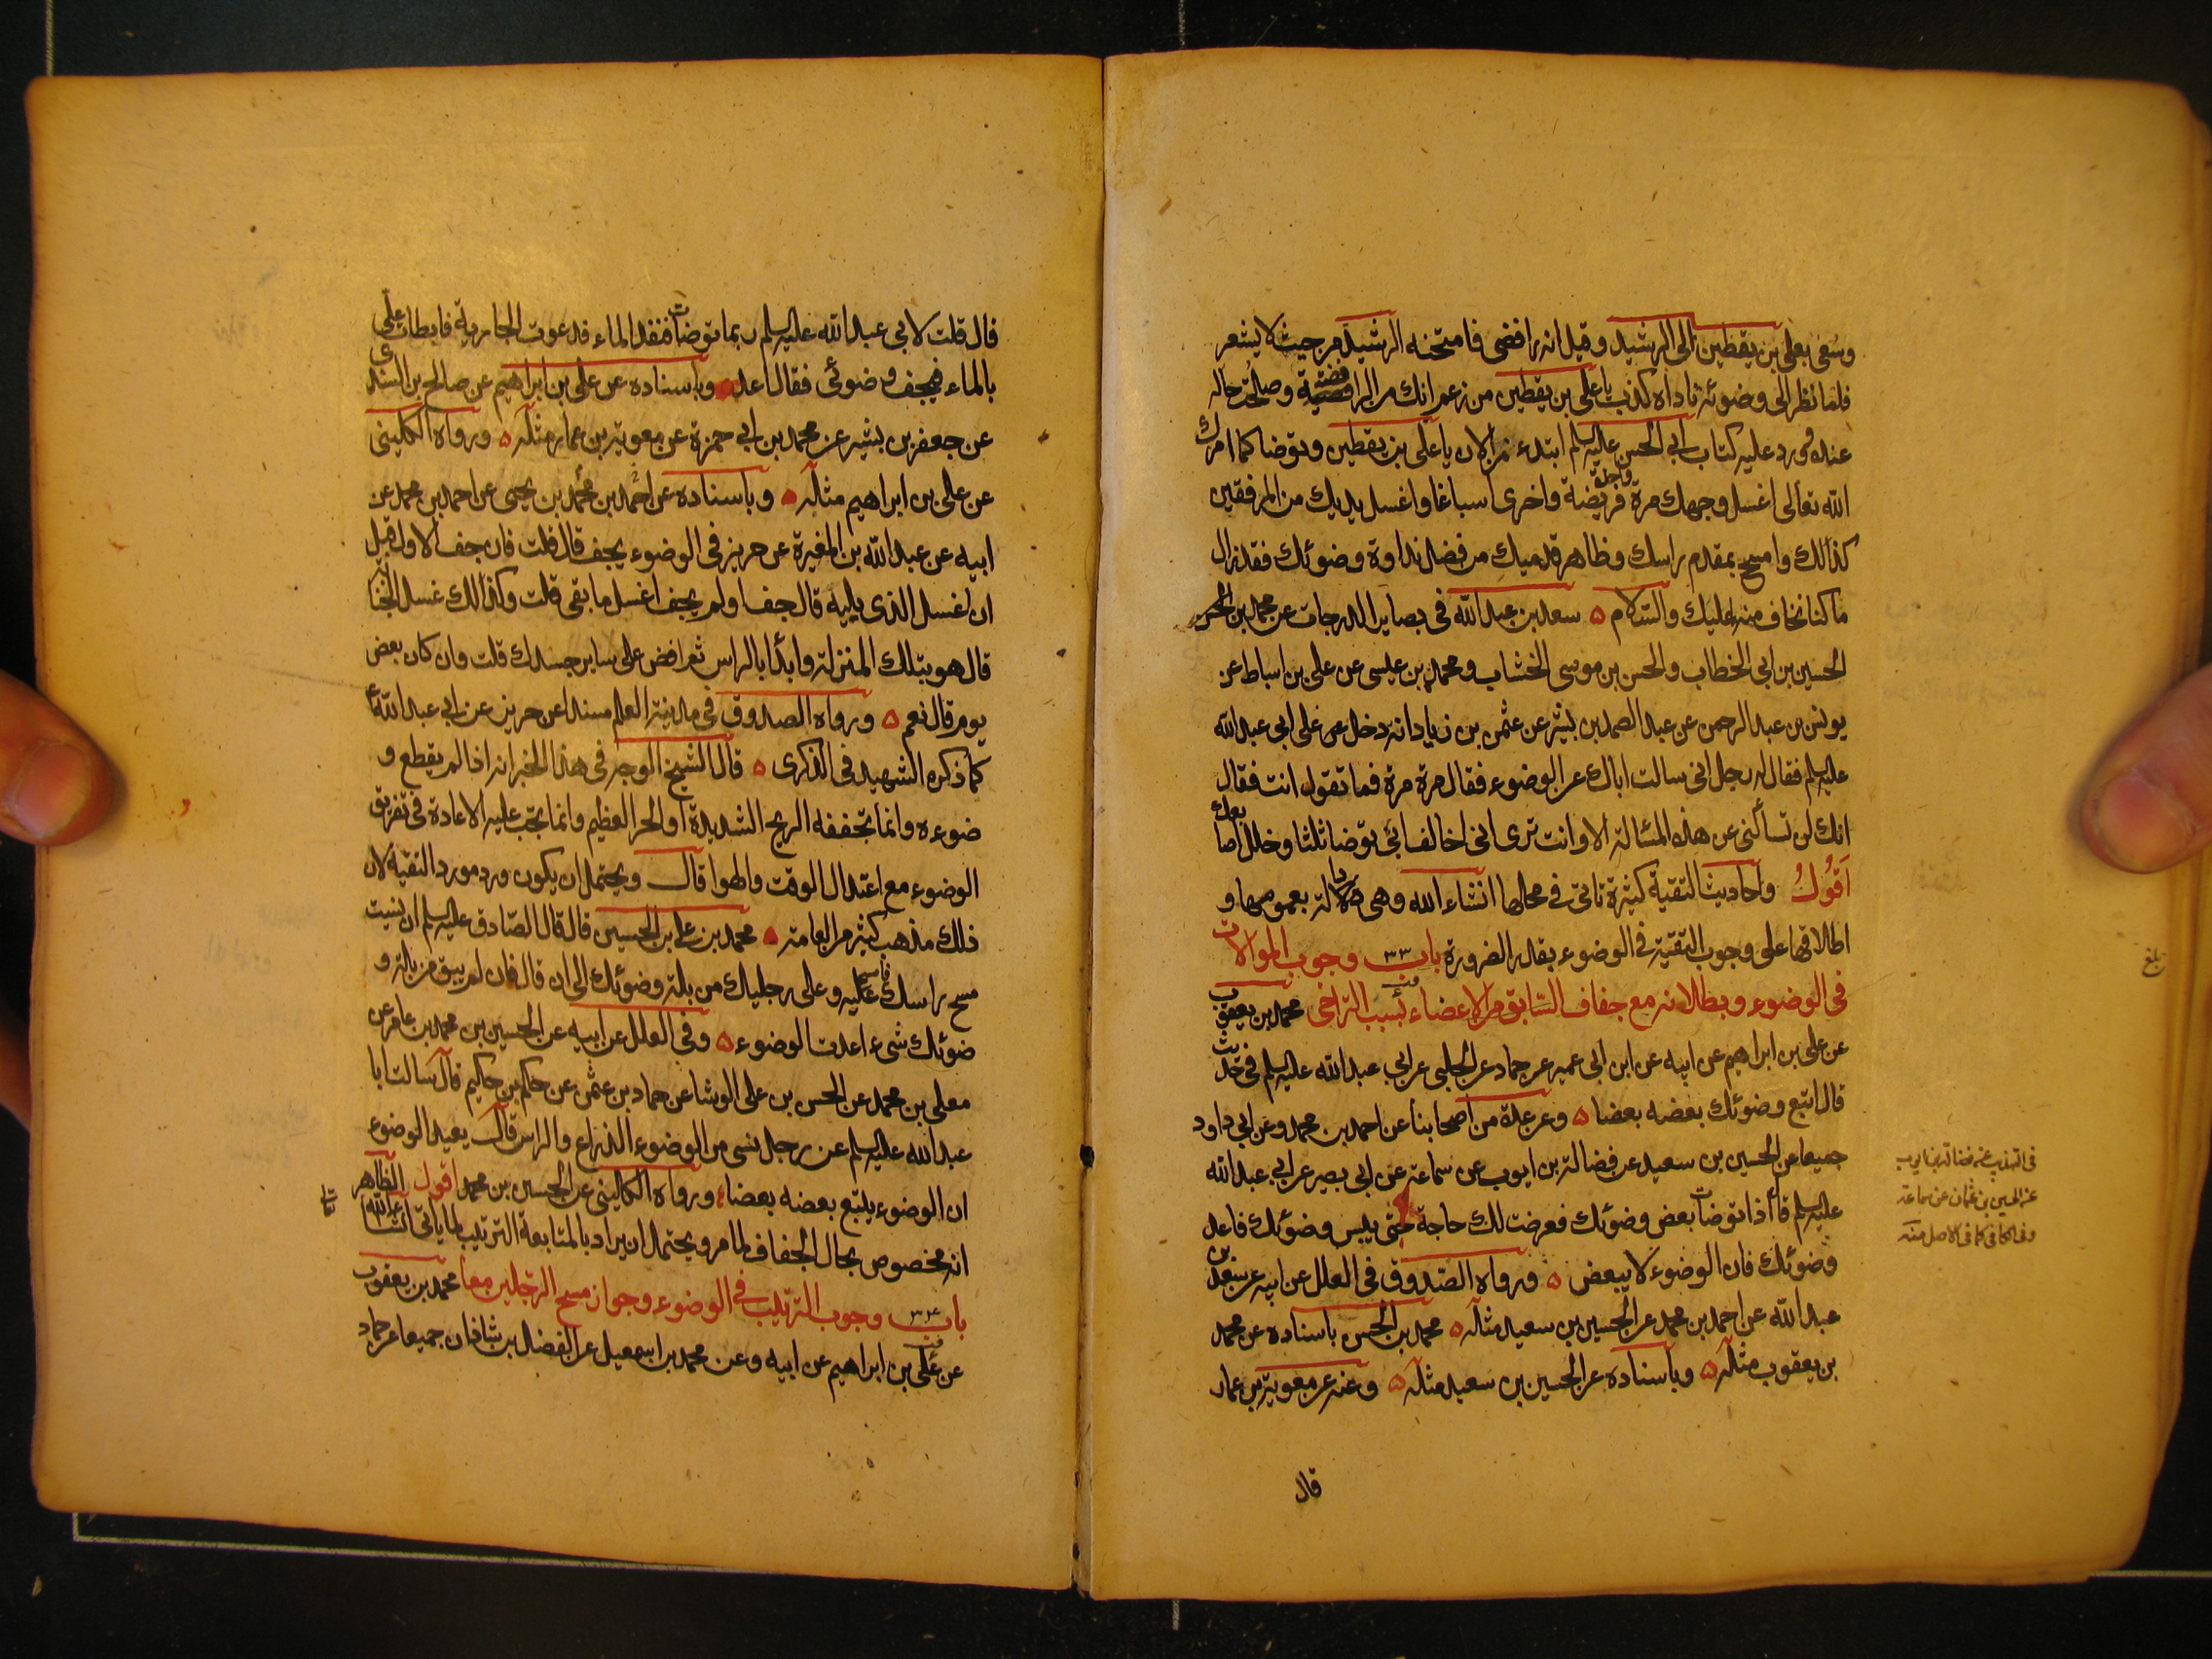 وسُعى بعلى بن يقطين الى الرشيد وقيل انه رافضى فامتحنه الرشيد من حيث لا يشعر
فلما نظر الى وضوئه ناداه كذب يا على بن يقطين من زعم انك من الرافضة وصلحت حاله
عنده وورد عليه كتاب ابى الحسن عليه السلم ابتدء من الان يا على بن يقطين وتوضا كما امرك
الله تعالى اغسل وجهك مرة واحدة فريضة واخرى اسباغا واغسل يديك من المرفقين
كذلك وامسح بمقدم راسك وظاهر قدميك من فضل نداوة وضوئك فقد زال
ما كنا نخاف منه عليك والسلام ه سعد بن عبد الله فى بصاير الدرجات عن محمد بن الحسن
الحسين بن ابى الخطاب والحسن بن موسى الخشاب ومحمد بن عيسى عن على بن اسباط عن
يونس بن عبد الرحمن عن عبد الصمد بن بشير عن عثمن بن زياد انه دخل عن على ابى عبد الله
عليه السلم فقال له رجل انى سالت اباك عن الوضوء فقال مرة مرة فما تقول انت فقال
انك لن تسألنى عن هذه المسئالة الا وانت ترى انى اخالف ابى توضا ثلثا وخلل اصابعك
اَقُولُ واحاديث التقية كثيرة تاتى فى محالها انشاء الله وهى دالة بعمومها و
اطلاقها على وجوب التقية فى الوضوء بقدر الضرورة باب ٣٣ وجوب الموالات
فى الوضوء وبطلانه مع جفاف السابق من الاعضاء بسبب التراخى محمد بن يعقوب
عن على بن ابراهيم عن ابيه عن ابن ابى عمير عن حماد عن الحلبى عن ابى عبد الله عليه السلم فى حديث
قال اتبع وضوئك بعضه بعضا ه وعن عدة من اصحابنا عن احمد بن محمد وعن ابى داود
جميعا عن الحسين بن سعيد عن فضالة بن ايوب عن سماعة عن ابى بصير عن ابى عبد الله
عليه السلم قا أذا توضات بعض وضوئك فعرضت لك حاجة حتى يبس وضوئك فاعد
وضوئك فان الوضوء لا يبعض ه ورواه الصدوق فى العلل عن ابيه عن سعد بن
عبد الله عن احمد بن محمد عن الحسين بن سعيد مثله ه محمد بن الحسن باسناده عن محمد
بن يعقوب مثله ه وباسناده عن الحسين بن سعيد مثله ه وعنه عن معوية بن عمار
قال
فى التهذيب عن فضالة بن ايوب
عن الحسين بن عثمان عن سماعة
وفى الكافى كما فى الاصل منه
بلغ
قال قلت لابى عبد الله عليه السلم ربما توضات فنفد الماء فدعوت الجارية فابطات على
بالماء فيجف وضوئى فقال اعد ه وباسناده عن على بن ابراهيم عن صالح بن السندى
عن جعفر بن بشير عن محمد بن ابى حمزة عن معوية بن عمار مثله ه ورواه الكلينى
عن على بن ابراهيم مثله ه وباسناده عن احمد بن محمد بن يحيى عن احمد بن محمد عن
ابيه عن عبد الله بن المغيرة عن حريز فى الوضوء يجف قال قلت فان جف الاول قبل
ان اغسل الذى يليه قال جف او لم يجف اغسل ما بقى قلت وكذلك غسل الجنا
قال هو بتلك المنزلة وابدأ بالراس ثم افض على ساير جسدك قلت وان كان بعض
يوم قال نعم ه ورواه الصدوق فى مدينة العلم مسندا عن حريز عن ابى عبد الله ع
كما ذكره الشهيد فى الذكرى ه قال الشيخ الوجه فى هذا الخبر انه اذا لم يقطع و
ضوءه وانما تجففه الريح الشديدة او الحر العظيم وانما يجب عليه الاعادة فى تفريق
الوضوء مع اعتدال الوقت والهوا قال ويحتمل ان يكون ورد مورد التقيه لان
ذلك مذهب كثير من العامة ه محمد بن على بن الحسين قال قال الصادق عليه السلم ان نسيت
مسح راسك فامسح عليه وعلى رجليك من بلة وضوئك الى ان قال فان لم يبق من بلة و
ضوئك شىء اعدت الوضوء ه وفى العلل عن ابيه عن الحسين بن محمد بن عامر عن
معلى بن محمد عن الحسن بن على الوشا عن حماد بن عثمن عن حكم بن حكيم قال سالت ابا
عبد الله عليه السلم عن رجل نسى من الوضوء الذراع والراس قال يعيد الوضوء
ان الوضوء يتبع بعضه بعضا ورواه الكلينى عن الحسين بن محمد اقول الظاهر
انه مخصوص بحال الجفاف لما مر ويحتمل ان يراد بالمتابعة الترتيب لما ياتى انشا الله
باب ٣٤ وجوب الترتيب فى الوضوء وجواز مسح الرجلين معا محمد بن يعقوب
عن على بن ابراهيم عن ابيه وعن محمد بن اسمعيل عن الفضل بن شاذان جميعا عن حماد